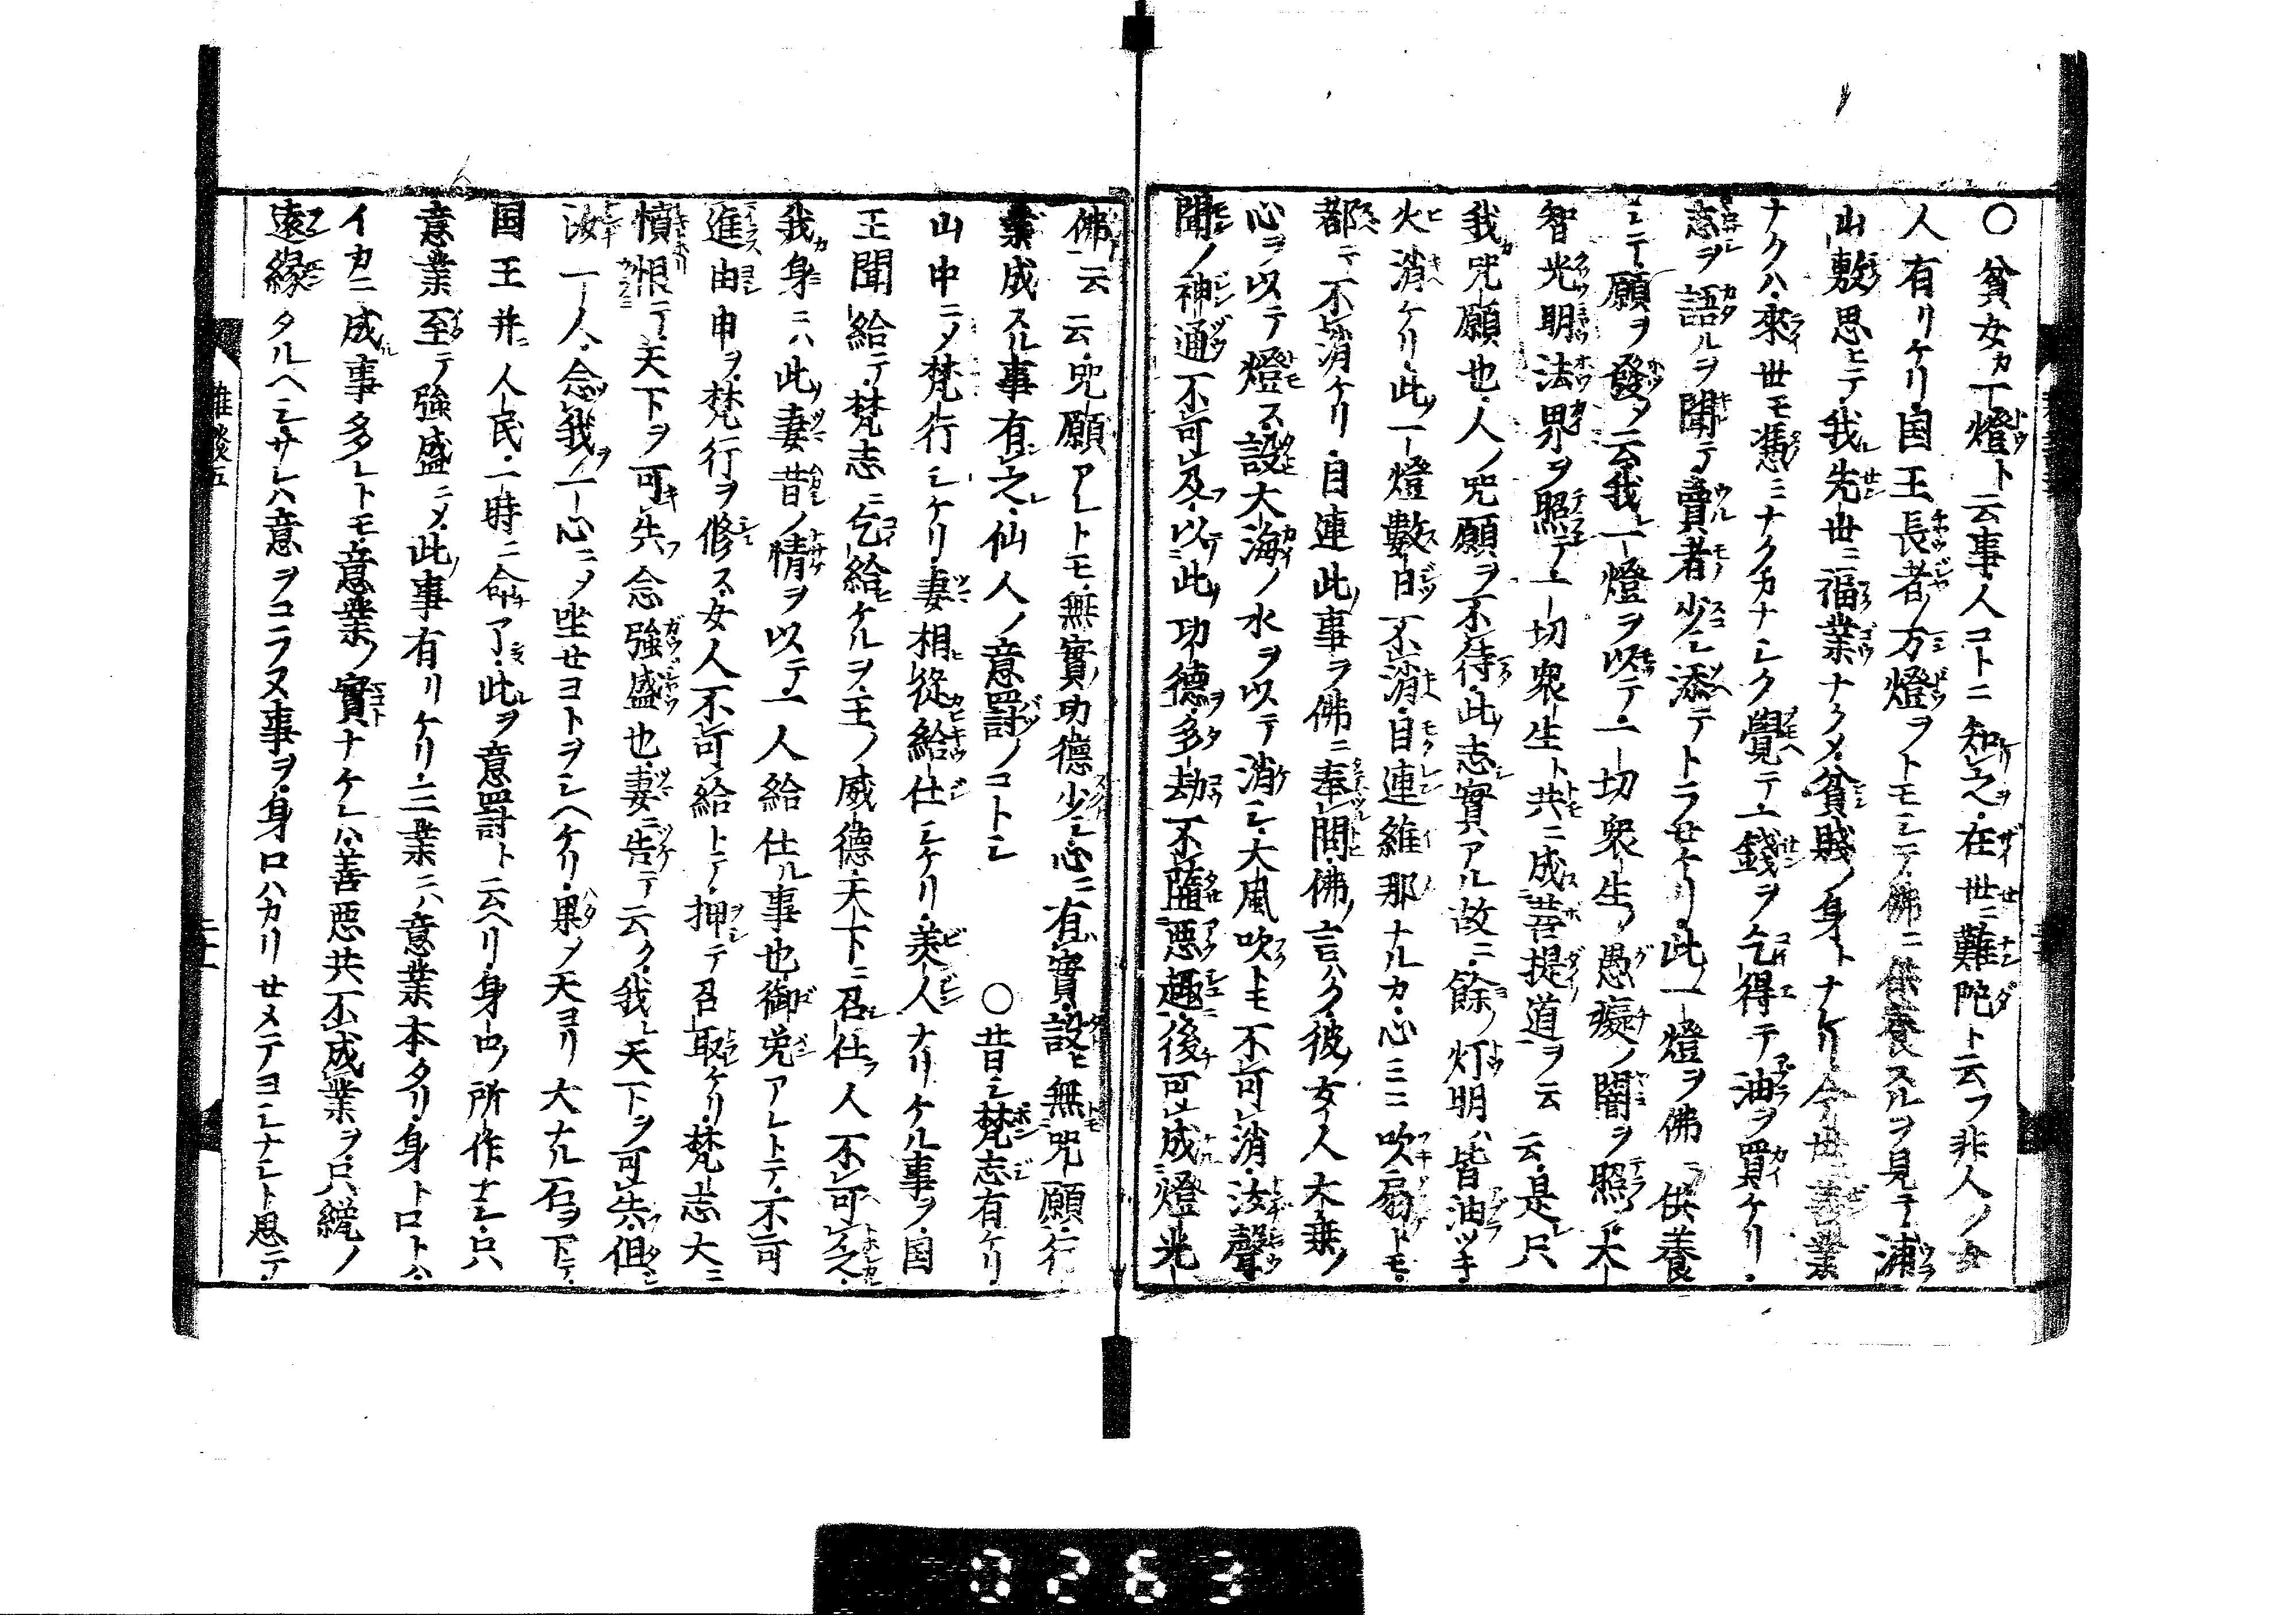 ○貧女カ一燈ト云事人コトニ知之在世ニ難陀ト云フ非人ノ女
人有リケリ国王長者ノ万燈ヲトモシテ佛ニ供養スルヲ見テ浦
山敷思ヒテ我先世ニ福業ナクメ貧賎ノ身トナケリ今世善業
ナクハ来世モ憑ミナクカナシク覺テ一錢ヲ乞得テ油ヲ買ケリ
志ヲ語ルヲ聞テ賣者少シ添テトラせケリ此ノ一燈ヲ佛ニ供養
シテ願ヲ發メ云我一燈ヲ以テ一切衆生ノ愚癡ノ闇ヲ照シ大
智光明法界ヲ照テ一切衆生ト共ニ成菩提道ヲ云云是レ只
我咒願也人ノ咒願ヲ不待此志實アル故ニ餘ノ灯明ハ皆油ツキ
火消ケリ此ノ一燈數日不消目連維那ナルカ心ミニ吹扇トモ
都テ不消ケリ目連此事ヲ佛ニ奉問佛ノ言ハク彼女人大乗ノ
心ヲ以テ燈ス設大海ノ水ヲ以テ消シ大風吹トモ不可消汝聲
聞ノ神通不可及以此功德多劫不墮悪趣後可成燈光
佛云云咒願アレトモ無實功德少シ心ニ有實設ヒ無咒願行
業成スル事有之仙人ノ意罸ノコトシ　○昔シ梵志有ケリ
山中ニメ梵行シケリ妻相從給仕シケリ美人ナリケル事ヲ国
王聞給テ梵志ニ乞給ケルヲ王ノ威德天下ニ召仕人不可乏
我身ニハ此妻昔ノ情ヲ以テ一人給仕ル事也御免アレトテ不可
進由申ヲ梵行ヲ修ス女人不可給トテ押テ召取ケリ梵志大ニ
憤恨テ天下ヲ可失念強盛也妻ニ告テ云ク我レ天下ヲ可失但
汝一人念我一心ニメ坐せヨトヲシヘケリ果メ天ヨリ大ナル石ヲ下テ
国王并ニ人民一時ニ命了此ヲ意罸ト云ヘリ身口ノ所作ナシ只
意業至テ強盛ニメ此事有リケリ三業ニハ意業本タリ身ト口トハ
イカニ成事多レトモ意業ノ實ナケレハ善悪共不成業ヲ只縱ノ
遠縁タルヘシサレハ意ヲコラヌ事ヲ身口ハカリせメテヨシナシト思テ
雑談五
二十一
8263